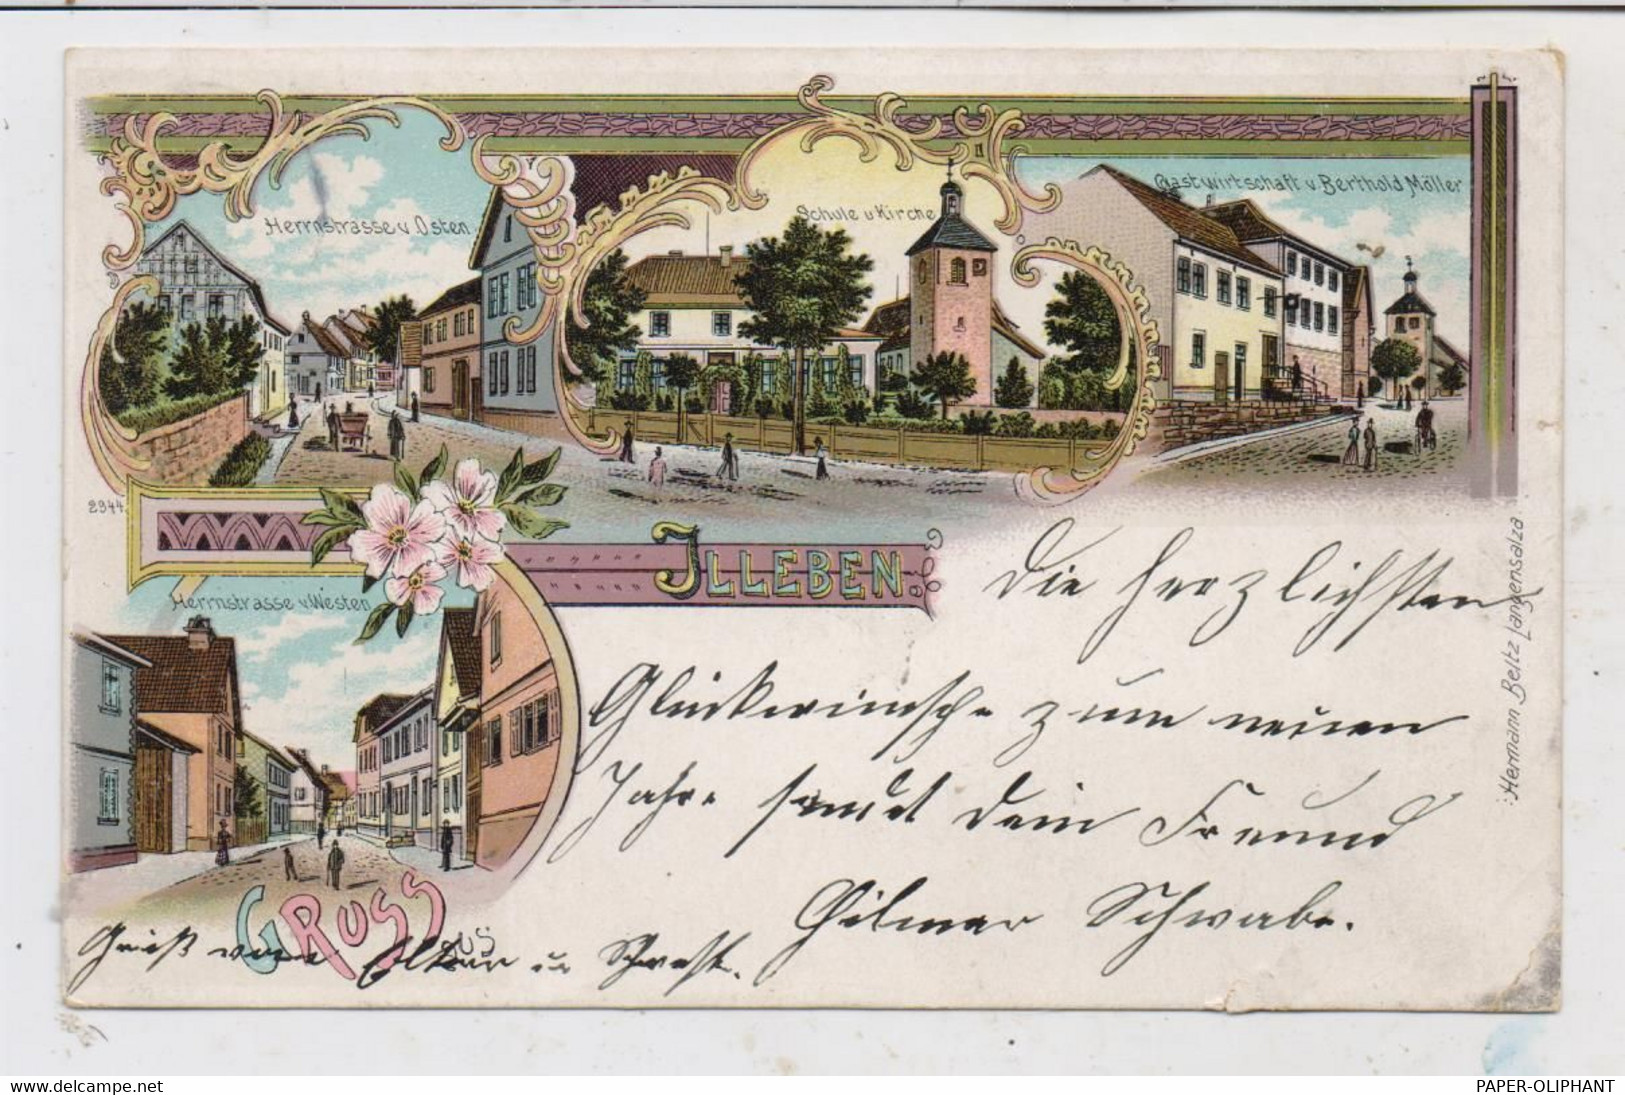 Herrnstrasse v. Osten
Schule u Kirche
Gastwirtschaft v. Berthold Möller
2944
JLLEBEN
Herrnstrasse v Westen
GRUSS
AUS
Die herzlichsten
Glückwünsche zum neuen
Jahre sendet Dein Freund
Hilmar Schwabe.
Gruß von Eltern u
Hermann Beltz Langensalza
www.delcampe.net
PAPER-OLIPHANT